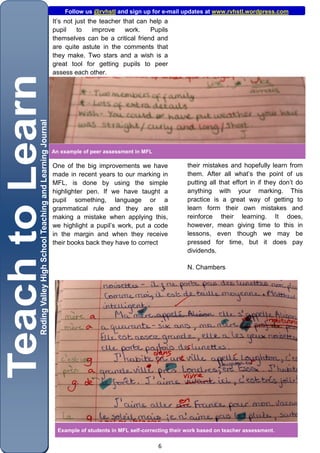 Follow us @rvhstl and sign up for e-mail updates at www.rvhstl.wordpress.com
Teach to Learn
Roding Valley High School Teaching and Learning Journal
It's not just the teacher that can help a
pupil to improve work. Pupils
themselves can be a critical friend and
are quite astute in the comments that
they make. Two stars and a wish is a
great tool for getting pupils to peer
assess each other.
* Two members of family
* Lots of extra details
wish: You could or have put weather your hair
was straight/curly and long/short
An example of peer assessment in MFL
One of the big improvements we have
made in recent years to our marking in
MFL, is done by using the simple
highlighter pen. If we have taught a
pupil something, language or a
grammatical rule and they are still
making a mistake when applying this,
we highlight a pupil's work, put a code
in the margin and when they receive
their books back they have to correct
their mistakes and hopefully learn from
them. After all what's the point of us
putting all that effort in if they don't do
anything with your marking. This
practice is a great way of getting to
learn form their own mistakes and
reinforce their learning. It does,
however, mean giving time to this in
lessons, even though we may be
pressed for time, but it does pay
dividends.
N. Chambers
noisette - il ne porte pas des lunettes
Comme moi, il est de taille moyenne.
intelligent.
mère a Ma mère appelle Alison. elle s'appelle
mère a a quarante-six ans, ma mère
Elle est assez grande, elle a les yeux noisette
elle porte parfois des lunettes.
c'est g J'habite dans une ville appellé Loughton, c'est
p a grande ville près Londres,
g de fort. J'aime vivre ici, c'est très joli!
J'aime aller en France pour mon
g le soleil mais je n'aime pas la pluie,
Example of students in MFL self-correcting their work based on teacher assessment.
6